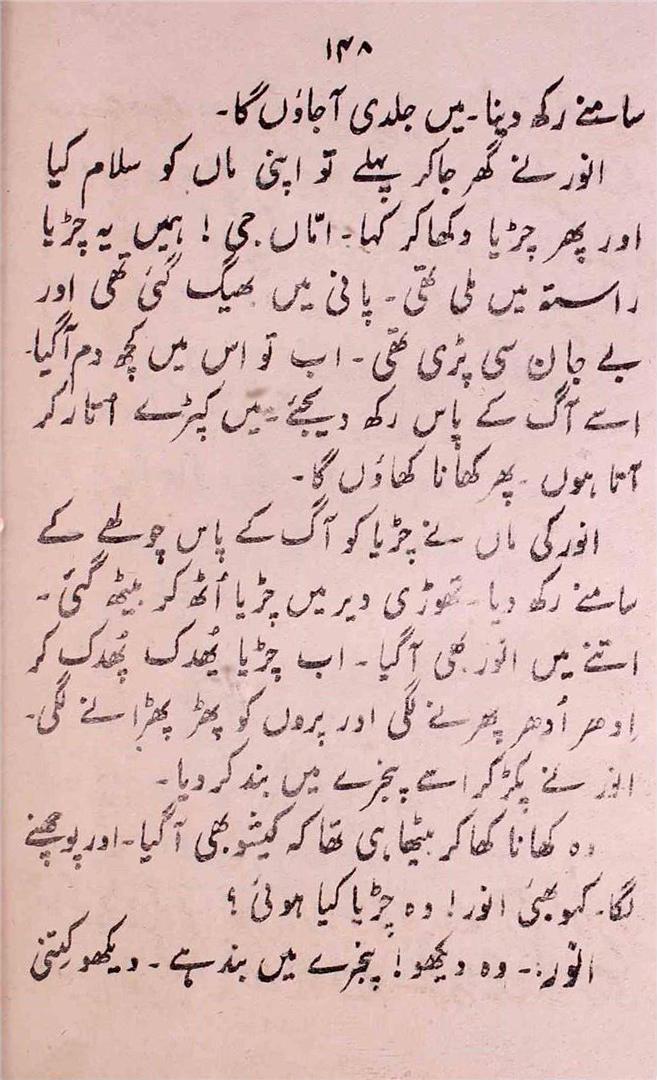 ۱۴۸
سامنے رکھ دینا۔ میں جلدی آجاؤں گا۔
انور نے گھر جاکر پہلے تو اپنی ماں کو سلام کیا
اور پھر چڑیا دکھاکر کہا۔ امّاں جی! ہمیں یہ چڑیا
راستہ میں ملی تھی۔ پانی میں بھیگ گئی تھی اور
بے جان سی پڑی تھی۔ اب تو اس میں کچھ دم آگیا۔
اسے آگ کے پاس رکھ دیجئے۔ میں کپڑے اُتار کر
آتا ہوں۔ پھر کھانا کھاؤں گا۔
انور کی ماں نے چڑیا کو آگ کے پاس چولھے کے
سامنے رکھ دیا۔ تھوڑی دیر میں چڑیا اُٹھ کر بیٹھ گئی۔
اتنے میں انور بھی آگیا۔ اب چڑیا پُھدک پُھدک کر
اِدھر اُدھر پھرنے لگی اور پروں کو پھڑ پھڑانے لگی۔
انور نے پکڑ کر اسے پنجرے میں بند کردیا۔
وہ کھانا کھاکر بیٹھا ہی تھا کہ کیشو بھی آگیا۔ اور پوچھنے
لگا۔ کہو بھئی انور! وہ چڑیا کیا ہوئی؟
انور:۔ وہ دیکھو! پنجرے میں بند ہے۔ دیکھو کِتنی